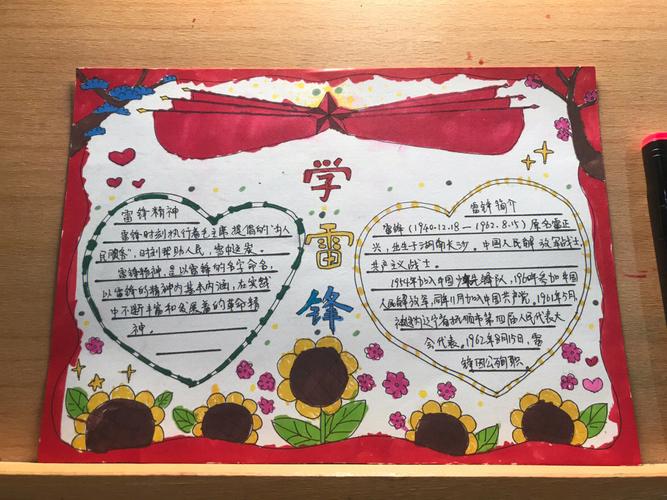 学
雷
锋
雷锋精神
雷锋时刻执行着毛主席提倡的"为人
民服务",时刻帮助人民,雪中送炭。
雷锋精神,是以雷锋的名字命名,
以雷锋的精神为基本内涵,在实践
中不断丰富和发展着的革命精
神。
雷锋简介
雷锋(1940.12.18—1962.8.15)原名雷正
兴,出生于湖南长沙。中国人民解放军战士,
共产主义战士。
1954年加入中国少年先锋队,1960年参加中国
人民解放军,同年11月加入中国共产党。1961年5月,
被选为辽宁省抚顺市第四届人民代表大
会代表。1962年8月15日,雷
锋因公殉职。